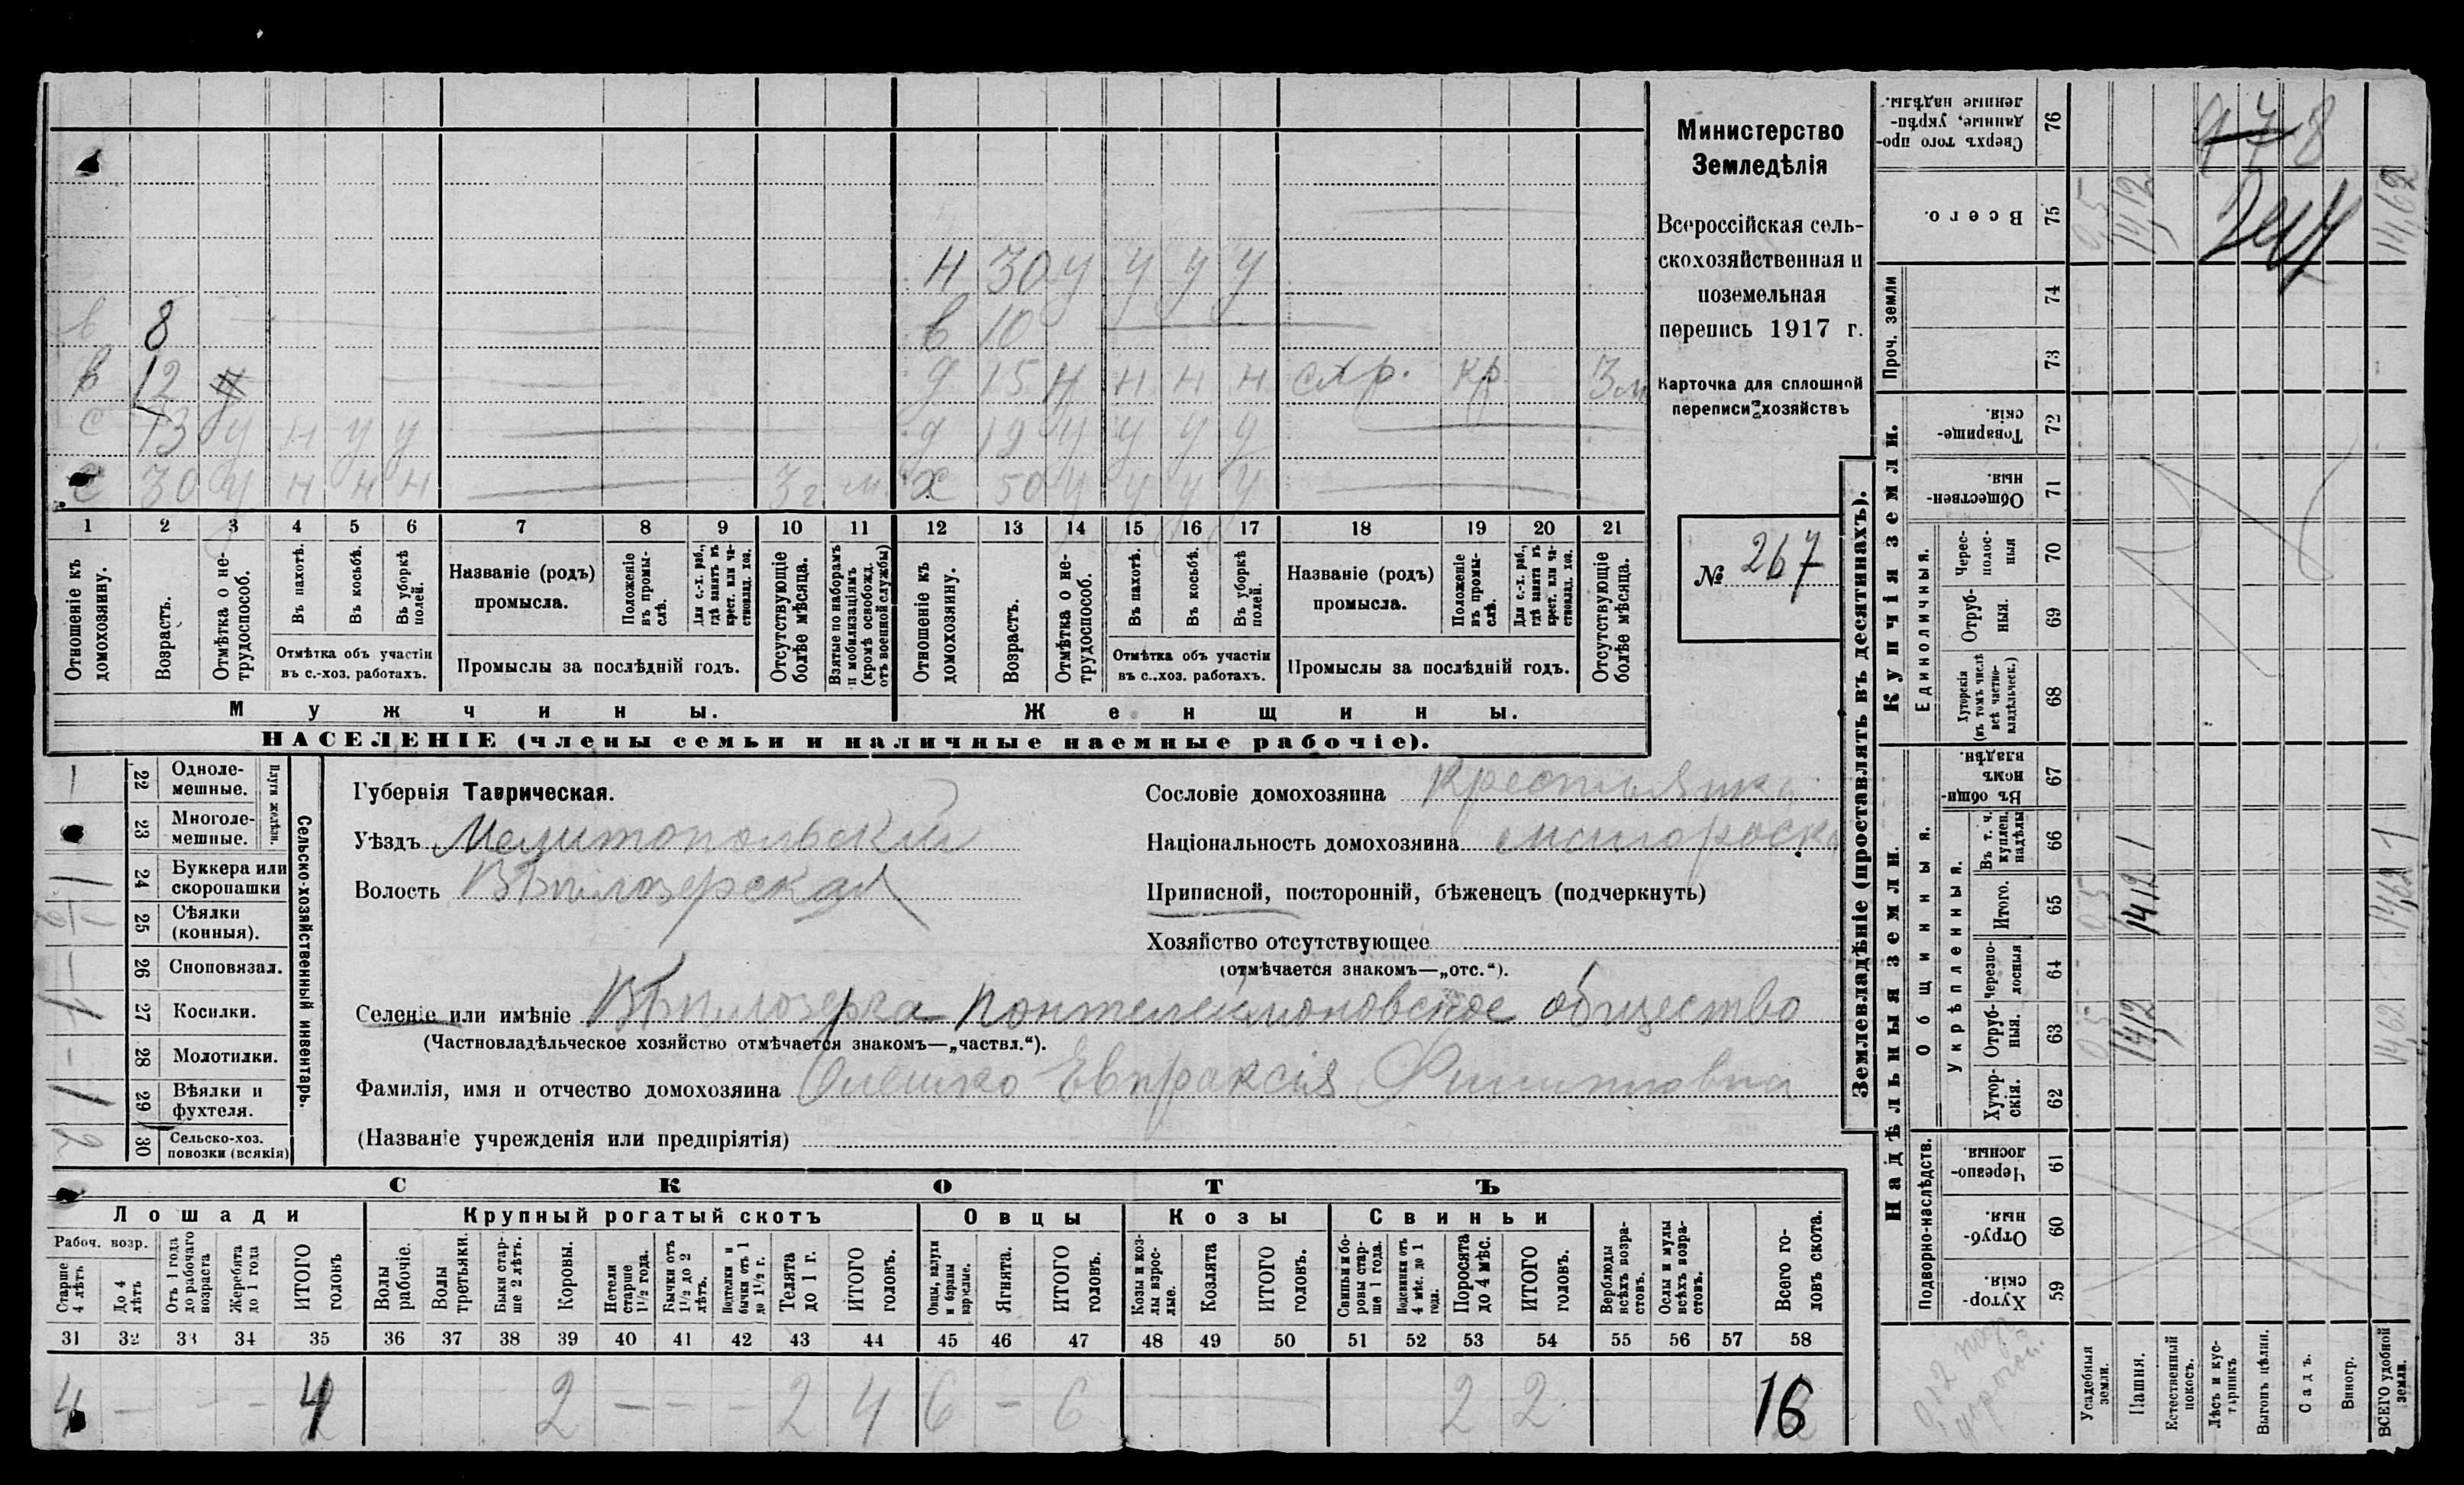 Министерство
Земледѣлія
Всероссійская сель-
скохозяйственная и
поземельная
перепись 1917 г.
Карточка для сплошной
переписи хозяйствъ
№ 267
Н 30 У У У У
в 8
в 10
в 12
д 15 Н Н Н Н стр. кр. 3 м
с 13 У Н У У
д 19 У У У У
с 30 У Н Н Н 3 г. м.
х 50 У У У У
1 2 3 4 5 6 7 8 9 10 11 12 13 14 15 16 17 18 19 20 21
Отношеніе къ домохозяину.
Возрастъ.
Отмѣтка о не-трудоспособ.
Въ пахотѣ.
Въ косьбѣ.
Въ уборкѣ полей.
Отмѣтка объ участіи
въ с.-хоз. работахъ.
Названіе (родъ)
промысла.
Положеніе въ промы-слѣ.
Для с.-х. раб., гдѣ занятъ въ крест. или ча-стновлад. хоз.
Промыслы за послѣдній годъ.
Отсутствующіе болѣе мѣсяца.
Взятые по наборамъ и мобилизаціямъ (кромѣ освобожд. отъ военной службы)
Отношеніе къ домохозяину.
Возрастъ.
Отмѣтка о не-трудоспособ.
Въ пахотѣ.
Въ косьбѣ.
Въ уборкѣ полей.
Отмѣтка объ участіи
въ с.-хоз. работахъ.
Названіе (родъ)
промысла.
Положеніе въ промы-слѣ.
Для с.-х. раб., гдѣ занята въ крест. или ча-стновлад. хоз.
Промыслы за послѣдній годъ.
Отсутствующіе болѣе мѣсяца.
Мужчины.
Женщины.
НАСЕЛЕНІЕ (члены семьи и наличные наемные рабочіе).
Сельско-хозяйственный инвентарь.
Плуги желѣзн.
22 Одноле-мешные.
23 Многоле-мешные. 1
24 Буккера или скоропашки 1
25 Сѣялки (конныя).
26 Сноповязал.
27 Косилки. 1
28 Молотилки. -
29 Вѣялки и фухтеля. 1
30 Сельско-хоз. повозки (всякія) 2
Губернія Таврическая.
Уѣздъ Мелитопольский
Волость Вѣлозерская
Сословіе домохозяина крестьянка
Національность домохозяина малоросска
Приписной, посторонній, бѣженецъ (подчеркнуть)
Хозяйство отсутствующее
(отмѣчается знакомъ—„отс.“).
Селеніе или имѣніе Вѣлозерка Понтелеимоновское общество
(Частновладѣльческое хозяйство отмѣчается знакомъ—„частвл.“).
Фамилія, имя и отчество домохозяина Олешко Евпраксія Филипповна
(Названіе учрежденія или предпріятія)
СКОТЪ
Лошади
Рабоч. возр.
Старше 4 лѣтъ
До 4 лѣтъ
Отъ 1 года до рабочаго возраста
Жеребята до 1 года
ИТОГО головъ
Крупный рогатый скотъ
Волы рабочіе.
Волы третьяки.
Быки стар-ше 2 лѣтъ.
Коровы.
Нетели старше 1½ года.
Бычки отъ 1½ до 2 лѣтъ.
Подтелки и бычки отъ 1 до 1½ г.
Телята до 1 г.
ИТОГО головъ.
Овцы
Овцы, валухи и бараны взрослые.
Ягнята.
ИТОГО головъ.
Козы
Козы и коз-лы взрос-лые.
Козлята
ИТОГО головъ.
Свиньи
Свиньи и бо-ровы стар-ше 1 года.
Подсвинки отъ 4 мѣс. до 1 года.
Поросята до 4 мѣс.
ИТОГО головъ.
Верблюды всѣхъ возра-стовъ.
Ослы и мулы всѣхъ возра-стовъ.
Всего го-ловъ скота.
31 32 33 34 35 36 37 38 39 40 41 42 43 44 45 46 47 48 49 50 51 52 53 54 55 56 57 58
4 — - - 4 2 — - - 2 4 6 - 6 2 2 16
Землевладѣніе (проставлять въ десятинахъ).
Купчія земли.
Надѣльныя земли.
Сверхъ того про-данные, укрѣп-ленные надѣлы. 76
Всего. 75
Проч. земли 74 73
Товарище-скія. 72
Обществен-ныя. 71
Единоличныя.
Черес-полос-ныя 70
Отруб-ныя. 69
Хуторскія (въ томъ числѣ всѣ частно-владѣльческ.) 68
Общинныя.
Въ общи-номъ владѣн. 67
Укрѣпленныя.
Въ т. ч. куплен. надѣлы 66
Итого. 65
Черезпо-лосныя 64
Отруб-ныя. 63
Хутор-скія. 62
Подворно-наслѣдств.
Черезпо-лосныя. 61
Отруб-ныя. 60
Хутор-скія. 59
Усадебныя земли. 0,5 0,5
Пашня. 14,12 14,12 14,12
Естественный покосъ.
Лѣсъ и кус-тарникъ
Выгонъ цѣлин.
Садъ.
Виногр.
ВСЕГО удобной земли. 14,62 14,62 14,62
8